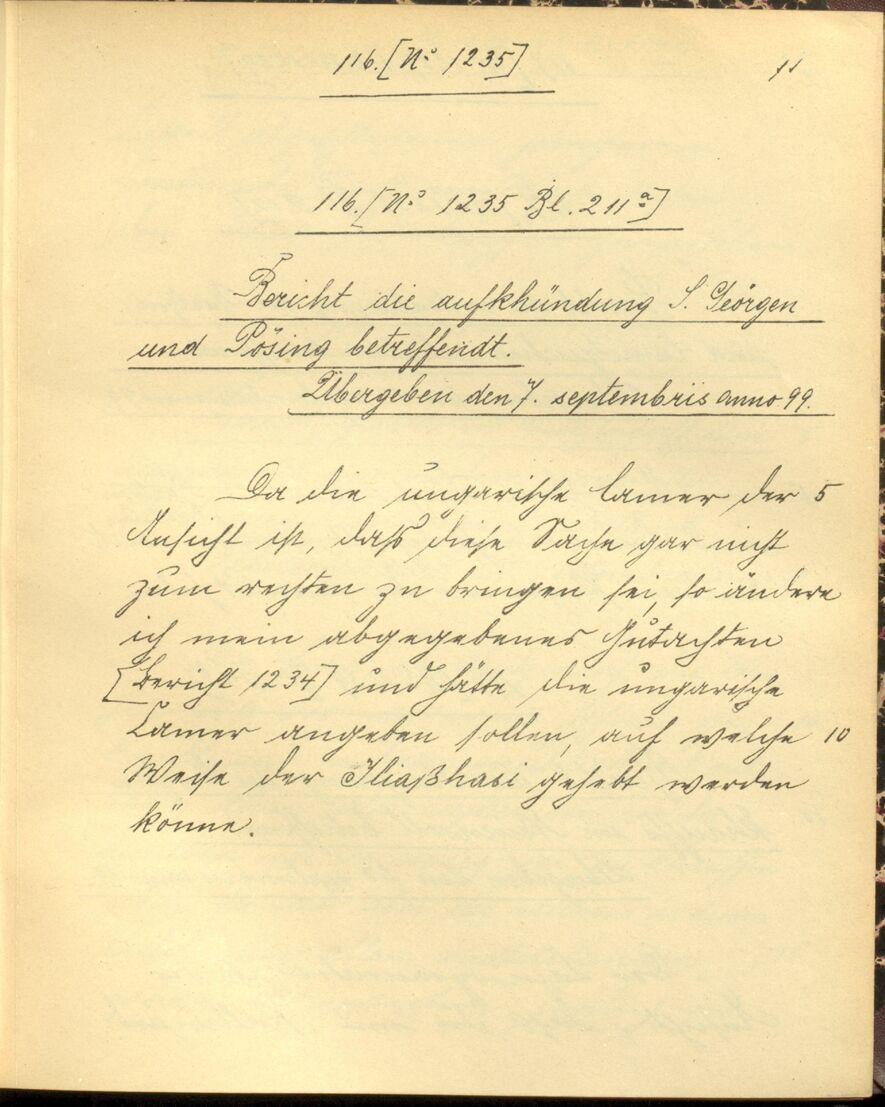 116. [No 1235] 11
116. [No 1235 Bl. 211a]
Bericht die aufkhündung S. Geörgen
und Pösing betreffendt.
Übergeben den 7. septembriis anno 99.
Da die ungarische Camer der 5
Ansicht ist, daß diese Sache gar nicht
zum rechten zu bringen sei, so ändere
ich mein abgegebenes Gutachten
[Bericht 1234] und hätte die ungarische
Camer angeben sollen, auf welche 10
Weise der Iliaßhasi gehebt werden
könne.